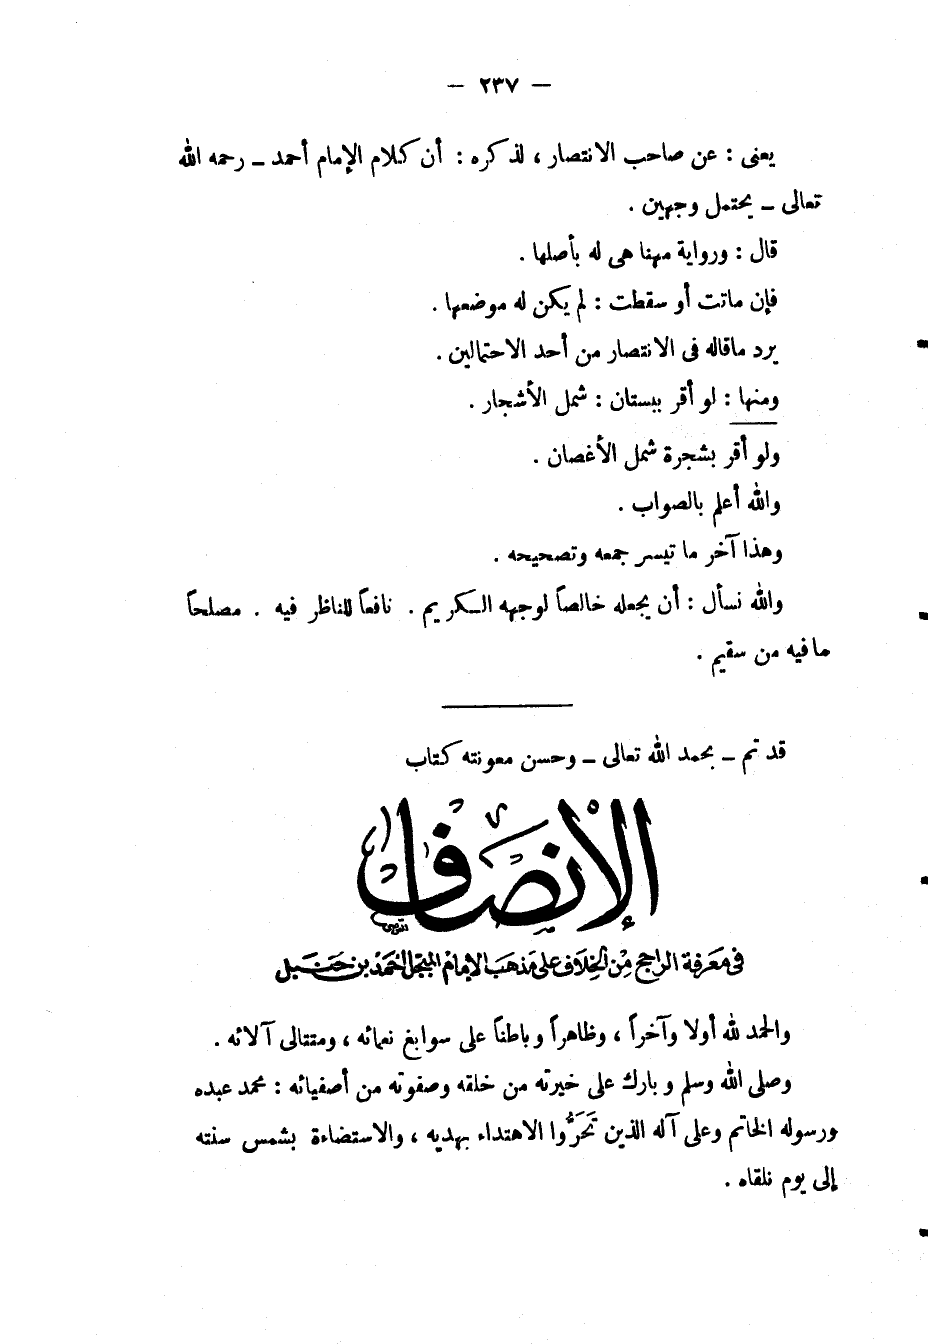 — ٢٣٧ —
يعنى : عن صاحب الانتصار ، لذكره : أن كلام الإمام أحمد ــ رحمه الله
تعالى ــ يحتمل وجهين .
قال : ورواية مهنا هى له بأصلها .
فإن ماتت أو سقطت : لم يكن له موضعها .
يرد ماقاله فى الانتصار من أحد الاحتمالين .
ومنها : لو أقر ببستان : شمل الأشجار .
ولو أقر بشجرة شمل الأغصان .
والله أعلم بالصواب .
وهذا آخر ما تيسر جمعه وتصحيحه .
والله نسأل : أن يجعله خالصاً لوجهه الكريم . نافعاً للناظر فيه . مصلحاً
مافيه من سقيم .
قد تم ــ بحمد الله تعالى ــ وحسن معونته كتاب
الإنصاف
فى معرفة الراجح من الخلاف على مذهب الإمام المبجل أحمد بن حنبل
والحمد لله أولا وآخراً ، وظاهراً وباطناً على سوابغ نعمائه ، ومتتالى آلائه .
وصلى الله وسلم وبارك على خيرته من خلقه وصفوته من أصفيائه : محمد عبده
ورسوله الخاتم وعلى آله الذين تَحَرَّوا الاهتداء بهديه ، والاستضاءة بشمس سنته
إلى يوم نلقاه .